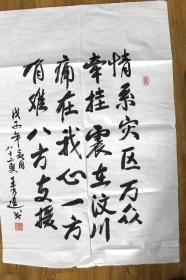 情系灾区万众
牵挂震在汶川
痛在我心一方
有难八方支援
戊子年
八十二叟